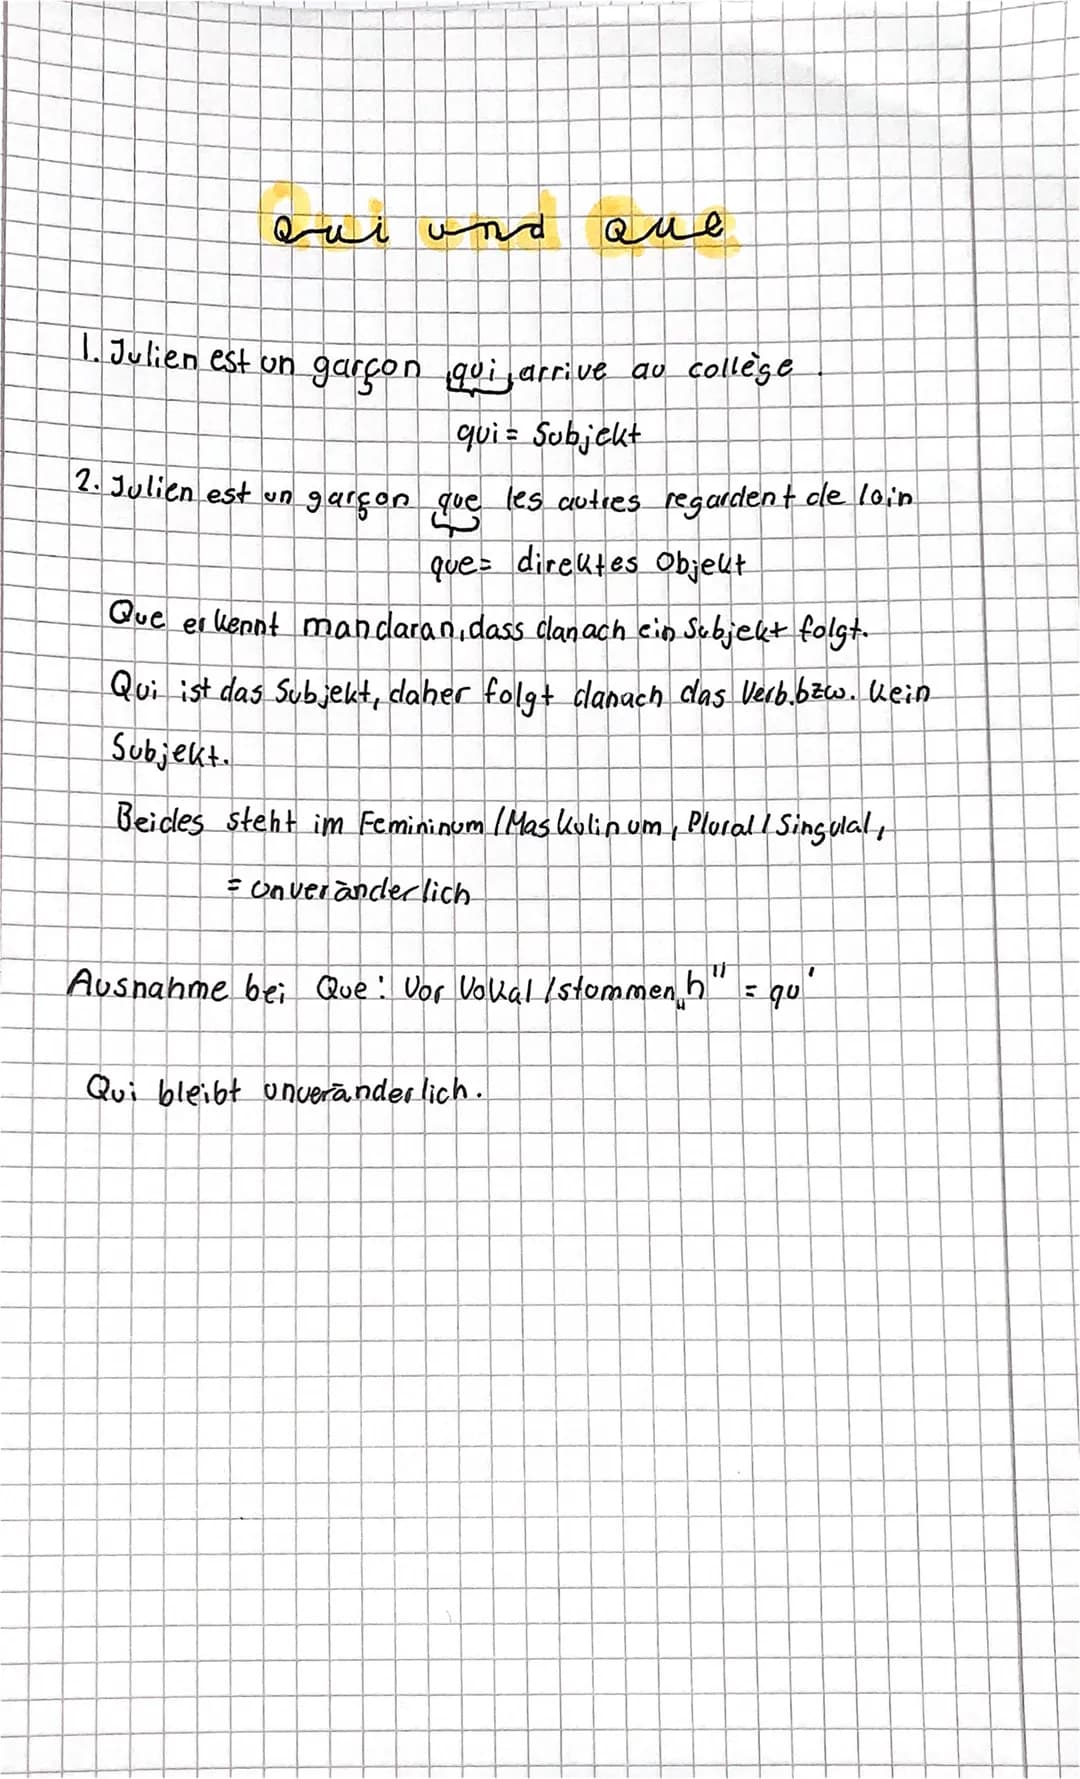 Qui und Que
1. Julien est un garçon qui arrive au collège.
qui = Subjekt
2. Julien est un garçon que les autres regardent de loin
que = direktes Objekt
Que erkennt man daran, dass danach ein Subjekt folgt.
Qui ist das Subjekt, daher folgt danach das Verb. bzw. kein
Subjekt.
Beides steht im Femininum / Maskulinum, Plural / Singulal,
= unveränderlich
Ausnahme bei Que: Vor Vokal / stommen „h" = qu'
Qui bleibt unveränderlich.